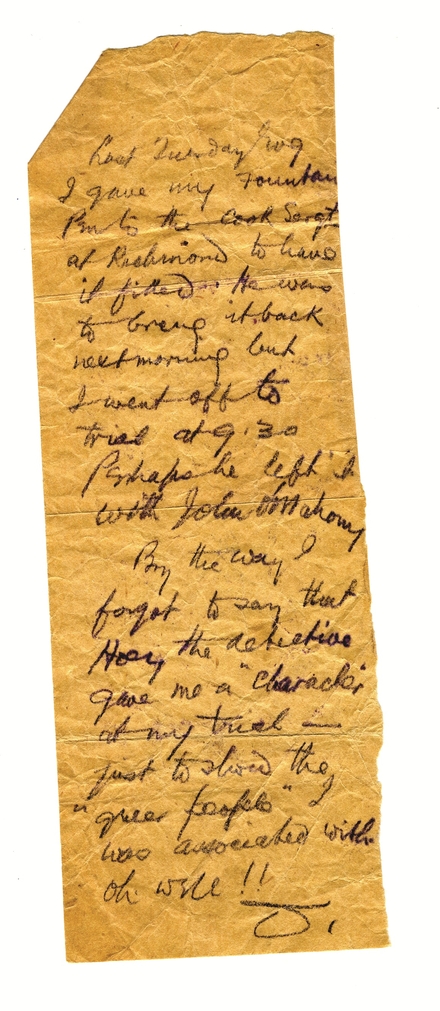 Last Tuesday
I gave my Fountain
Pen to the Cook Sergt
at Richmond to have
it filled. He was
to bring it back
next morning but
I went off to
trial at 9.30
Perhaps he left it
with John O'Mahony
By the way I
forgot to say that
Hoey the detective
gave me a "character"
at my trial —
just to show the
"queer people" I
was associated with.
oh well!!
J.